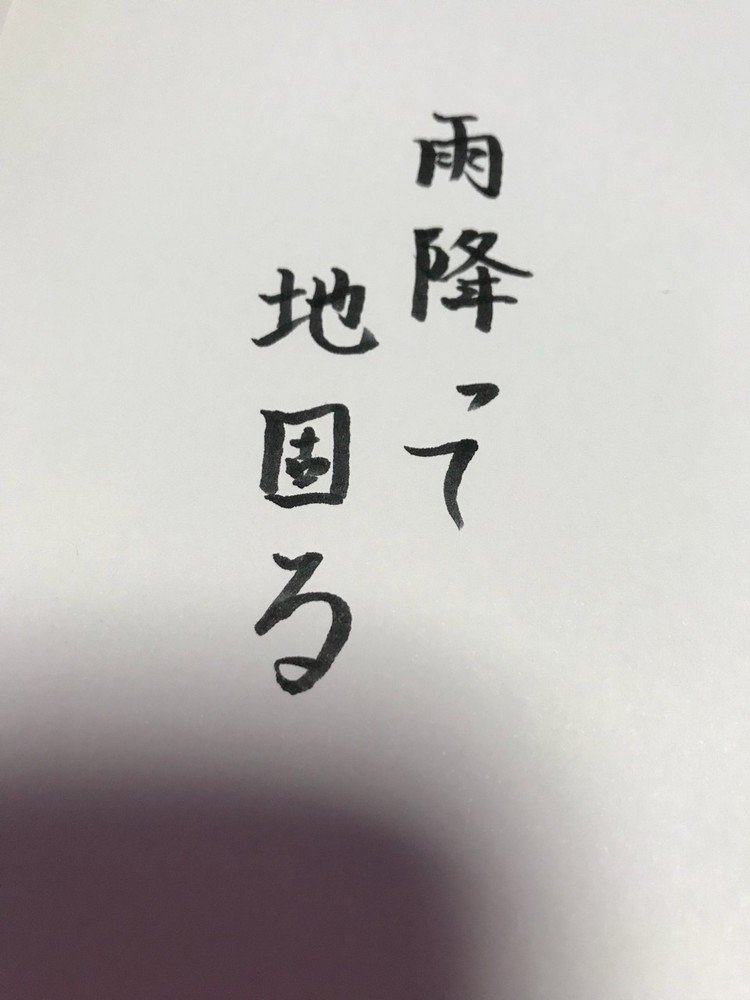 雨降って
地固る